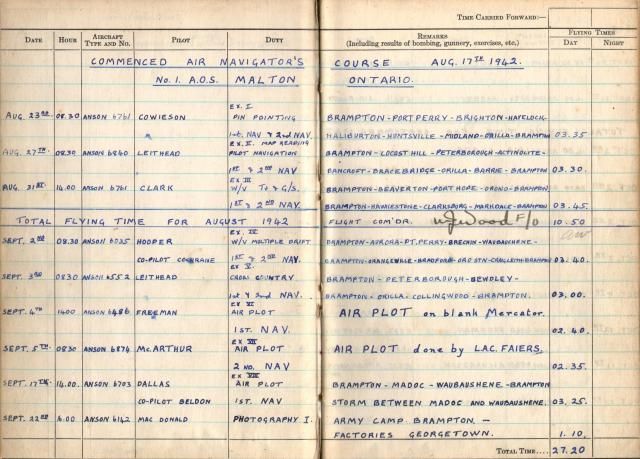 TIME CARRIED FORWARD:—
DATE HOUR AIRCRAFT TYPE AND No. PILOT DUTY REMARKS (Including results of bombing, gunnery, exercises, etc.) FLYING TIMES DAY NIGHT
COMMENCED AIR NAVIGATOR'S COURSE AUG. 17TH 1942.
No. 1. A.O.S. MALTON ONTARIO.
EX. I
AUG. 23RD 08.30 ANSON 6761 COWIESON PIN POINTING BRAMPTON-PORT PERRY-BRIGHTON-HAVELOCK-
1st. NAV & 2nd NAV. HALIBURTON-HUNTSVILLE-MIDLAND-ORILLA-BRAMPTON 03.35
EX. II. MAP READING
AUG. 27TH 08.30 ANSON 6840 LEITHEAD PILOT NAVIGATION BRAMPTON-LOCUST HILL-PETERBOROUGH-ACTINOLITE-
1st & 2nd NAV BANCROFT-BRACEBRIDGE-ORILLA-BARRIE-BRAMPTON 03.30.
EX III
AUG. 31ST. 14.00 ANSON 6761 CLARK W/V Tr & G/S. BRAMPTON-BEAVERTON-PORT HOPE-ORONO-BRAMPTON
1st & 2nd NAV. BRAMPTON-HAVALSTONE-CLARKSBURG-MARKDALE-BRAMPTON 03.45
TOTAL FLYING TIME FOR AUGUST 1942 FLIGHT COM'DR. Wood F/O 10.50
EX. IV
SEPT. 2ND 08.30 ANSON 6035 HOOPER W/V MULTIPLE DRIFT BRAMPTON-AURORA-PT. PERRY-BRECHIN-WAUBAUSHENE-
CO-PILOT COCHRANE 1st & 2nd NAV. BRAMPTON-ORANGEVILLE-BRADFORD-ORO STN-CRAIGLEITH-BRAMPTON 03.40.
EX V.
SEPT. 3RD 0830 ANSON 6552 LEITHEAD CROSS COUNTRY BRAMPTON-PETERBOROUGH-BEWDLEY-
1st & 2nd NAV. BRAMPTON-ORILLA-COLLINGWOOD-BRAMPTON. 03.00.
EX VI
SEPT. 4TH 1400 ANSON 6486 FREEMAN AIR PLOT AIR PLOT on blank Mercator.
1ST. NAV. 02.40.
EX VII
SEPT. 5TH. 0830 ANSON 6874 McARTHUR AIR PLOT AIR PLOT done by LAC. FAIERS.
2ND. NAV 02.35.
EX VIII
SEPT. 17TH. 14.00. ANSON 6703 DALLAS AIR PLOT BRAMPTON-MADOC-WAUBAUSHENE-BRAMPTON
CO-PILOT BELDON 1ST. NAV STORM BETWEEN MADOC AND WAUBAUSHENE. 03.25.
SEPT. 22ND 16.00 ANSON 6142 MAC DONALD PHOTOGRAPHY I. ARMY CAMP BRAMPTON —
FACTORIES GEORGETOWN. 1.10.
TOTAL TIME.... 27.20